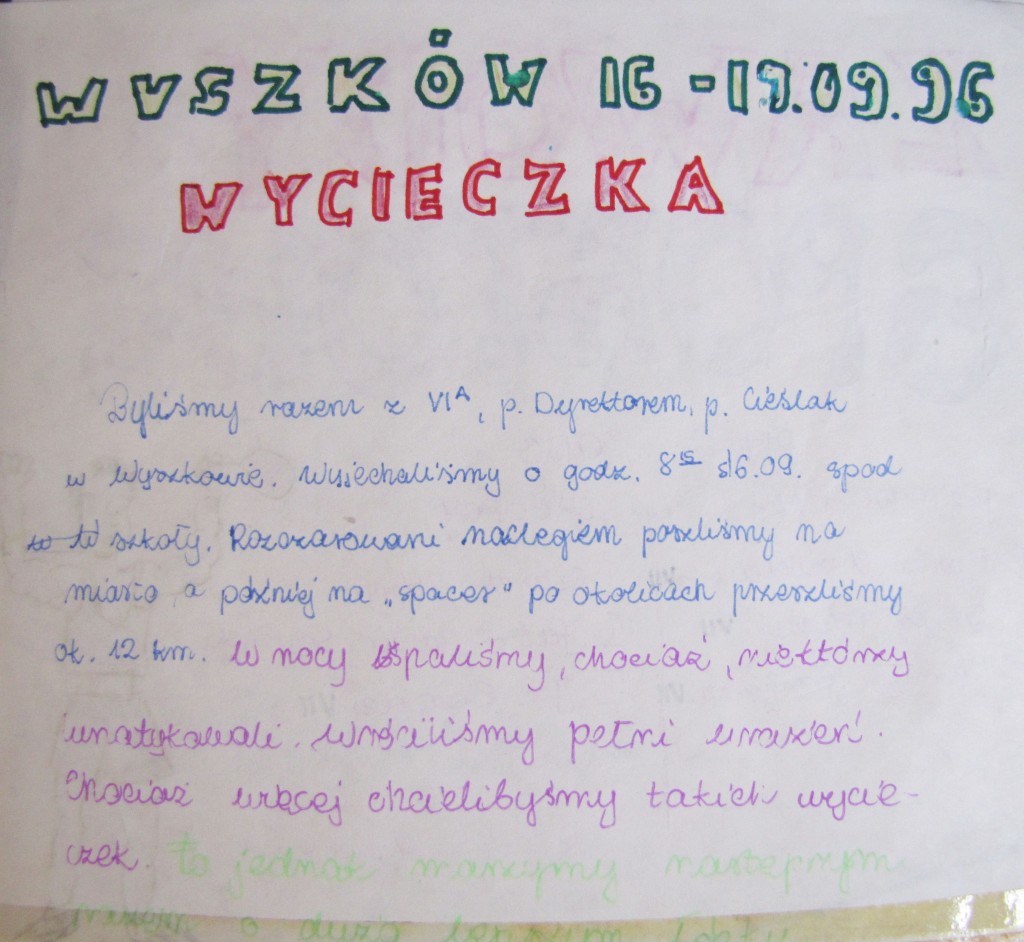 WYSZKÓW 16-19.09.96
WYCIECZKA
Byliśmy razem z VIA, p. Dyrektorem, p. Cieślak
w Wyszkowie. Wyjechaliśmy o godz. 8 16.09. spod
szkoły. Rozczarowani noclegiem poszliśmy na
miasto a później na „spacer" po okolicach przeszliśmy
ok. 12 km. W nocy spaliśmy, chociaż niektórzy
Wróciliśmy pełni wrażeń.
Chociaż więcej chcielibyśmy takich wycie-
czek. To jednak marzymy następnym
razem o dużo lepszym